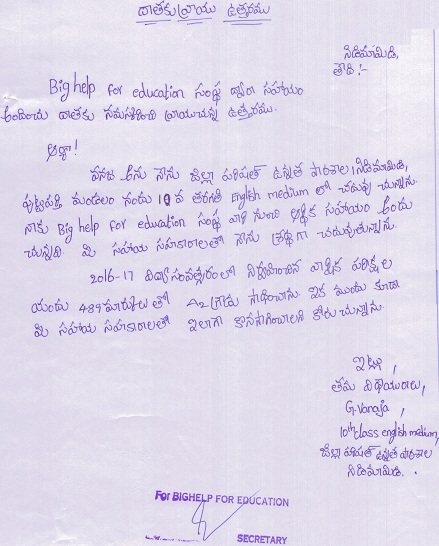 దాతకు వ్రాయు ఉత్తరము
నిడిమామిడి,
తేది:-
Big help for education సంస్థ ద్వారా సహాయం
అందించు దాతకు నమస్కరించి వ్రాయుచున్న ఉత్తరము.
అయ్యా!
వనజ అను నేను జిల్లా పరిషత్ ఉన్నత పాఠశాల నిడిమామిడి,
పుట్టపర్తి మండలం నందు 10 వ తరగతి English medium లో చదువు చున్నాను.
నాకు Big help for education సంస్థ వారి నుంచి ఆర్థిక సహాయం అందు
చున్నది. మి సహాయ సహకారాలతో నేను శ్రద్ధగా చదువుతున్నాను.
2016-17 విద్యాసంవత్సరంలో నిర్వహించిన వార్షిక పరీక్షల
యందు 489 మార్కులతో A2 గ్రాడు సాధించాను. ఇక ముందు కూడా
మి సహాయ సహకారాలతో ఇలాగే కొనసాగించాలని కోరు చున్నాను.
ఇట్లు,
తమ విధేయురాలు,
G. Vanaja,
10th class english medium,
జిల్లా పరిషత్ ఉన్నత పాఠశాల
నిడిమామిడి.
For BIGHELP FOR EDUCATION
SECRETARY